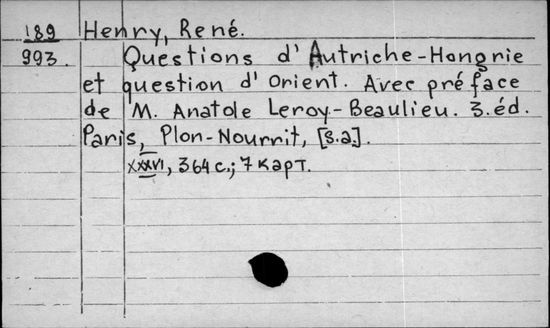 189 Henry, René.
993. Questions d'Autriche-Hongrie
et question d'Orient. Avec préface
de M. Anatole Leroy-Beaulieu. 3.éd.
Paris, Plon-Nourrit, [s.a.].
XXXVI, 364 с.; 7 карт.